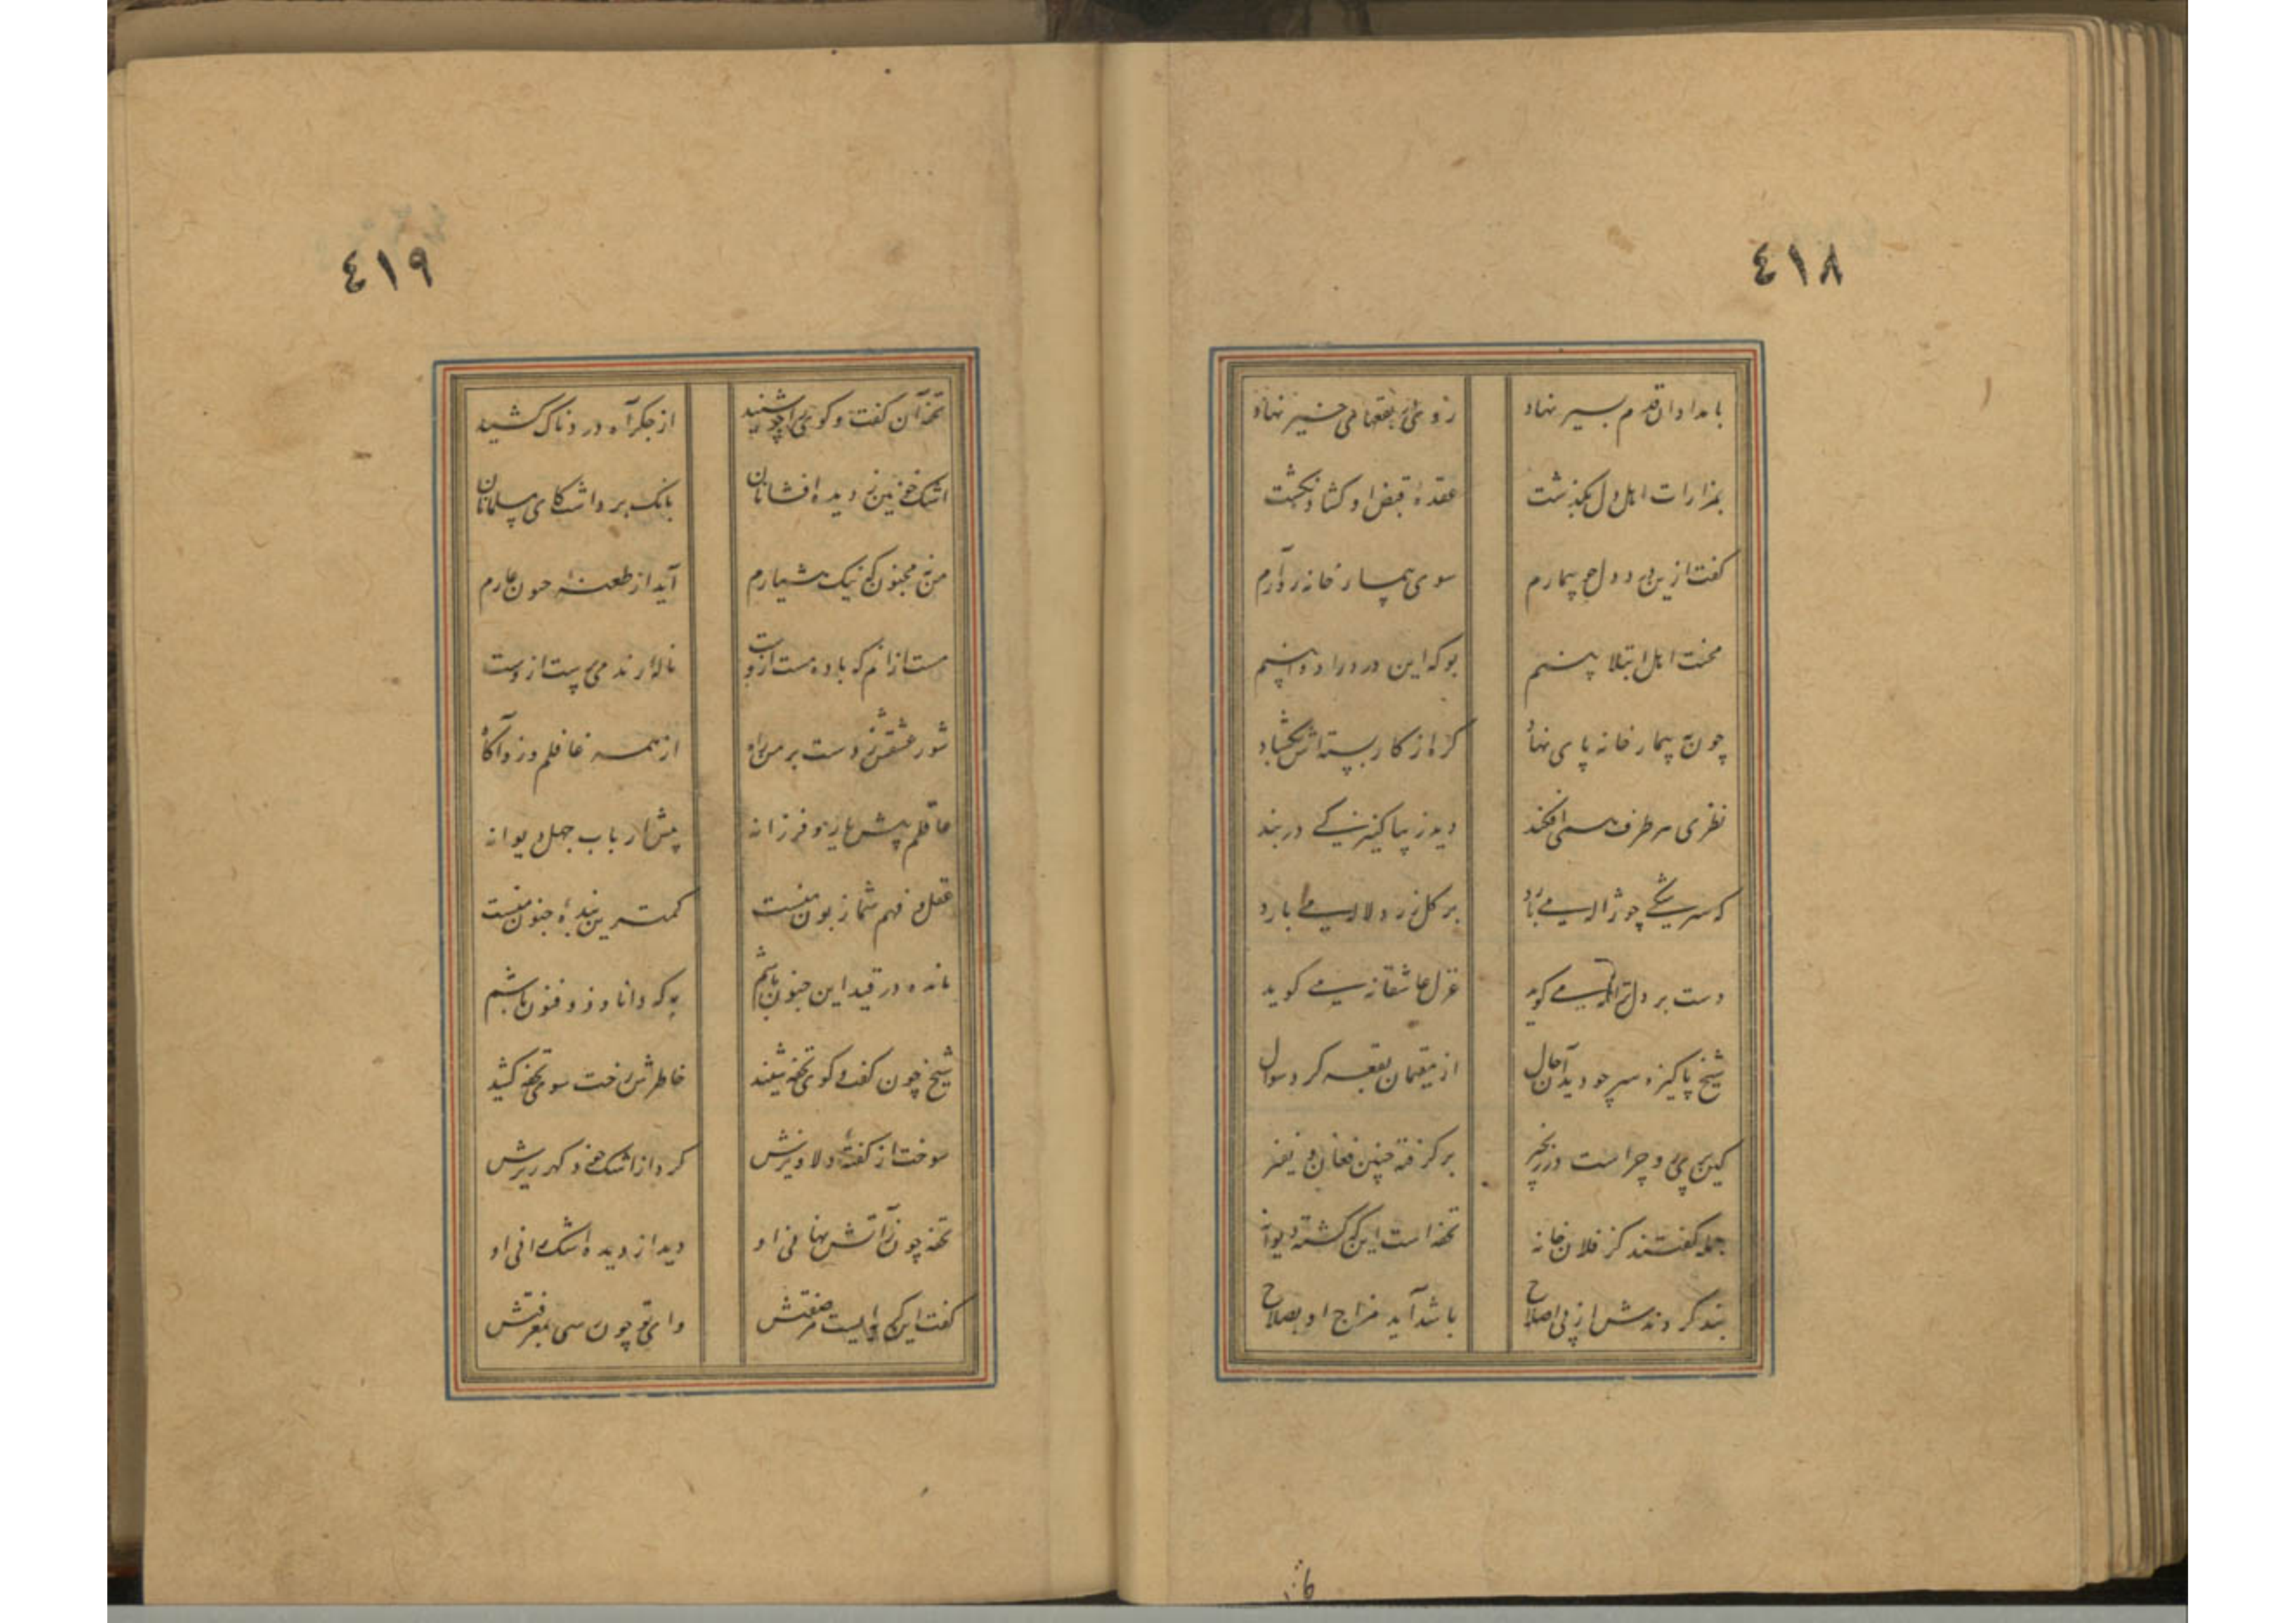 ٤١٨
بامدادان قدم بسیر نهاد
رو سوی بقعهای خیر نهاد
بمزارات اهل دل بگذشت
عقدهٔ قبض او گشاد نگشت
گفت ازین درد دل چو بیمارم
سوی بیمارخانه رو آرم
محنت اهل ابتلا بینم
بو که این درد را دوا بینم
چون به بیمارخانه پای نهاد
گره از کار بسته‌اش بگشاد
نظری هر طرف همی افکند
دید زیبا کنیزکی در بند
که سرشکی چو ژاله می بارد
بر گل زرد لاله می بارد
دست بر دل ترانه می گوید
غزل عاشقانه می گوید
شیخ پاکیزه سیر چو دید آن حال
از مقیمان بقعه کرد سوال
کین پری و چراست در زنجیر
برگرفته چنین فغان و نفیر
جمله گفتند کز فلان خانه
تحفه است این که گشته دیوانه
بند کردندش از پی اصلاح
باشد آید مزاج او بصلاح
٤١٩
تحفه آن گفت و گوی را چو شنید
از جگر آه دردناک کشید
اشک خونین ز دیده افشانان
بانک برداشت کای مسلمانان
من نه مجنونم که نیک هشیارم
آید از طعنه جنون عارم
مست ازانم که باده مست ازوست
ناله رند می پرست ازوست
شور عشقش زدست بر من راه
از همه غافلم وزو آگاه
عاقلم پیش یار و فرزانه
پیش ارباب جهل دیوانه
عقل و فهم شما زبون منست
کمترین بندهٔ جنون منست
مانده در قید این جنون باشم
به که دانا و ذوفنون باشم
شیخ چون گفت و گوی تحفه شنید
خاطرش رخت سوی تحفه کشید
سوخت از گفتهٔ دلاویزش
کرد از اشک خود گهر ریزش
تحفه چون ز آتش نهانی او
دید از دیده اشک رانی او
گفت این گریه ایست بر صفتش
وای تو چون رسی بمعرفتش